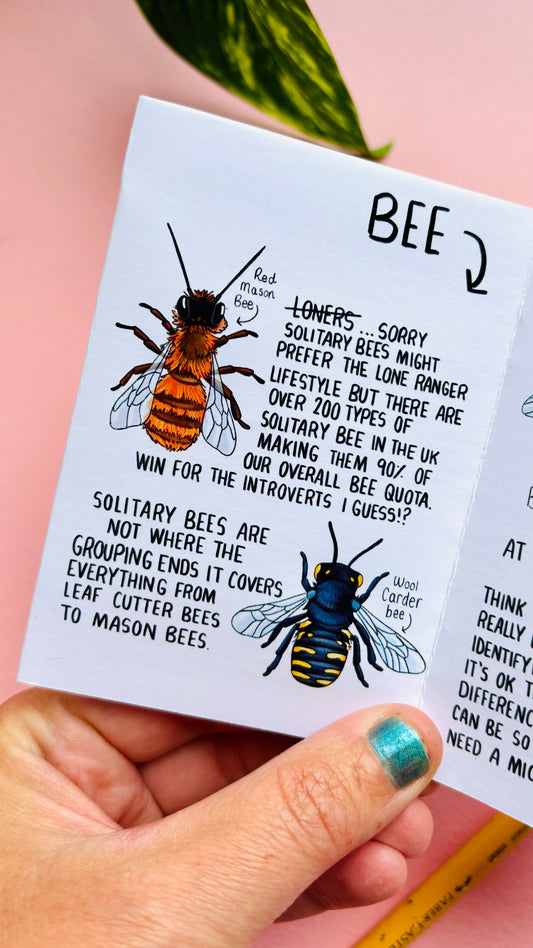 BEE
Red
mason
Bee
LONERS ...SORRY
SOLITARY BEES MIGHT
PREFER THE LONE RANGER
LIFESTYLE BUT THERE ARE
OVER 200 TYPES OF
SOLITARY BEE IN THE UK
MAKING THEM 90% OF
OUR OVERALL BEE QUOTA.
WIN FOR THE INTROVERTS I GUESS!?
SOLITARY BEES ARE
NOT WHERE THE
GROUPING ENDS IT COVERS
EVERYTHING FROM
LEAF CUTTER BEES
TO MASON BEES.
Wool
Carder
bee
AT
THINK
REALLY
IDENTIFY
IT'S OK T
DIFFERENC
CAN BE SO
NEED A MIC
FABER-CASTE